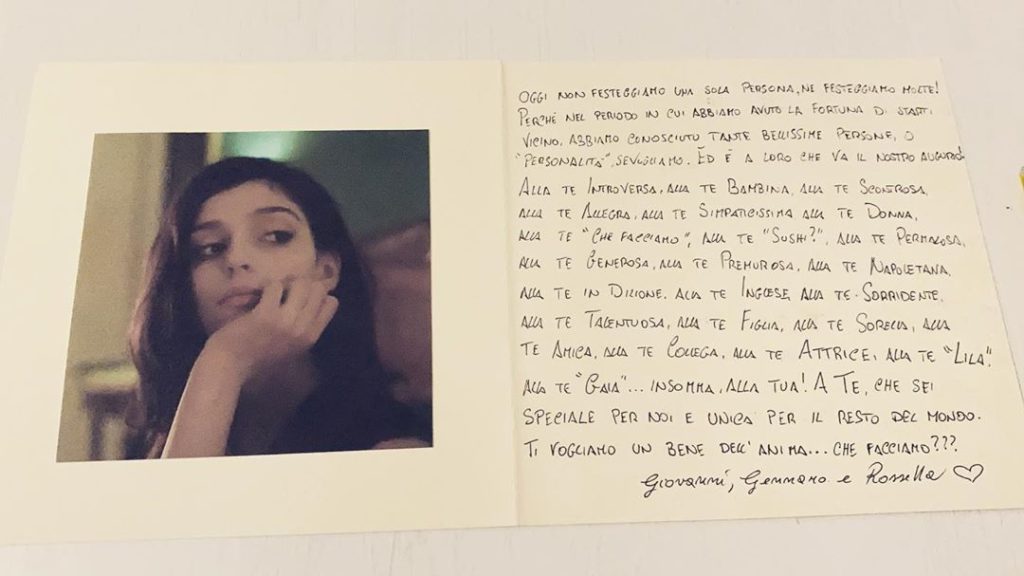 OGGI NON FESTEGGIAMO UNA SOLA PERSONA, NE FESTEGGIAMO MOLTE!
PERCHÉ NEL PERIODO IN CUI ABBIAMO AVUTO LA FORTUNA DI STARTI
VICINO, ABBIAMO CONOSCIUTO TANTE BELLISSIME PERSONE, O
"PERSONALITÀ", SE VOGLIAMO. ED È A LORO CHE VA IL NOSTRO AUGURIO!
ALLA TE INTROVERSA, ALLA TE BAMBINA, ALLA TE SCONTROSA,
ALLA TE ALLEGRA, ALLA TE SIMPATICISSIMA ALLA TE DONNA,
ALLA TE "CHE FACCIAMO", ALLA TE "SUSHI?", ALLA TE PERMALOSA,
ALLA TE GENEROSA, ALLA TE PREMUROSA, ALLA TE NAPOLETANA,
ALLA TE IN DIZIONE, ALLA TE INGLESE, ALLA TE SORRIDENTE,
ALLA TE TALENTUOSA, ALLA TE FIGLIA, ALLA TE SORELLA, ALLA
TE AMICA, ALLA TE COLLEGA, ALLA TE ATTRICE, ALLA TE "LILA",
ALLA TE "GAIA"... INSOMMA, ALLA TUA! A TE, CHE SEI
SPECIALE PER NOI E UNICA PER IL RESTO DEL MONDO.
TI VOGLIAMO UN BENE DELL'ANIMA... CHE FACCIAMO???
Giovanni, Gennaro e Rossella ♡